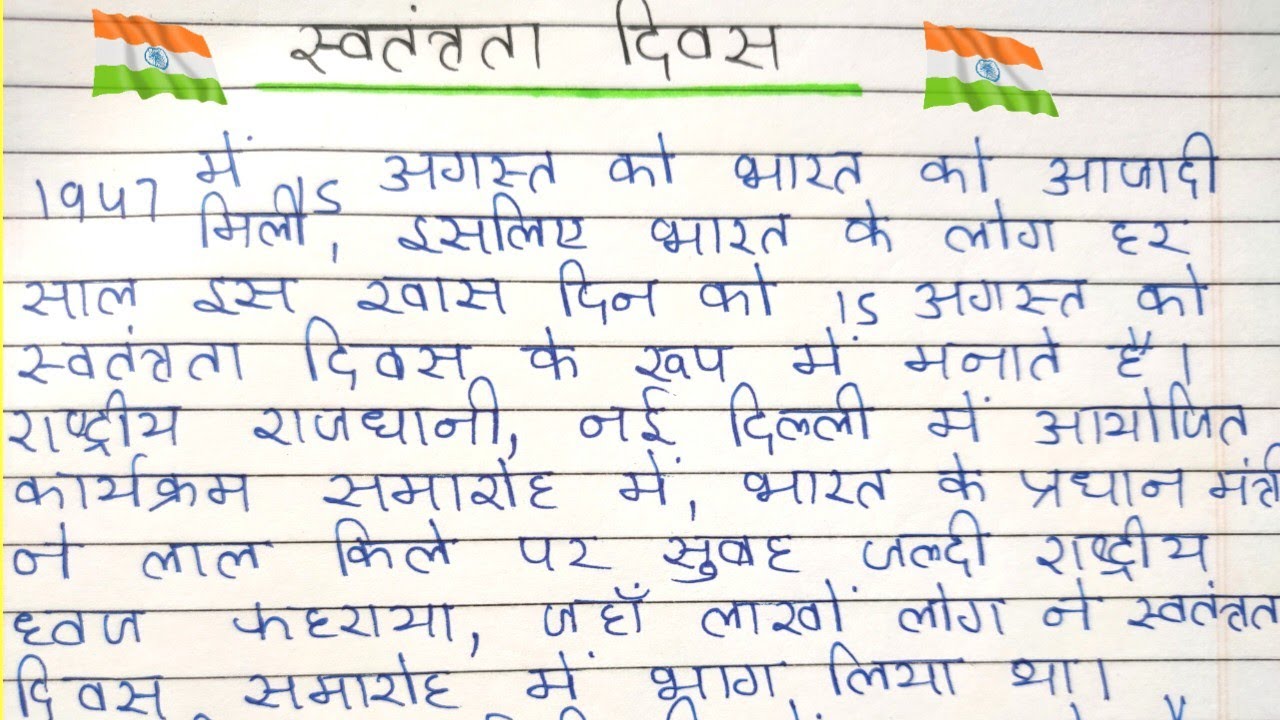 स्वतंत्रता दिवस
1947 में 15 अगस्त को भारत को आजादी
मिली, इसलिए भारत के लोग हर
साल इस खास दिन को 15 अगस्त को
स्वतंत्रता दिवस के रूप में मनाते है।
राष्ट्रीय राजधानी, नई दिल्ली में आयोजित
कार्यक्रम समारोह में, भारत के प्रधान मंत्री
ने लाल किले पर सुबह जल्दी राष्ट्रीय
ध्वज फहराया, जहाँ लाखों लोग ने स्वतंत्रत
दिवस समारोह में भाग लिया था।